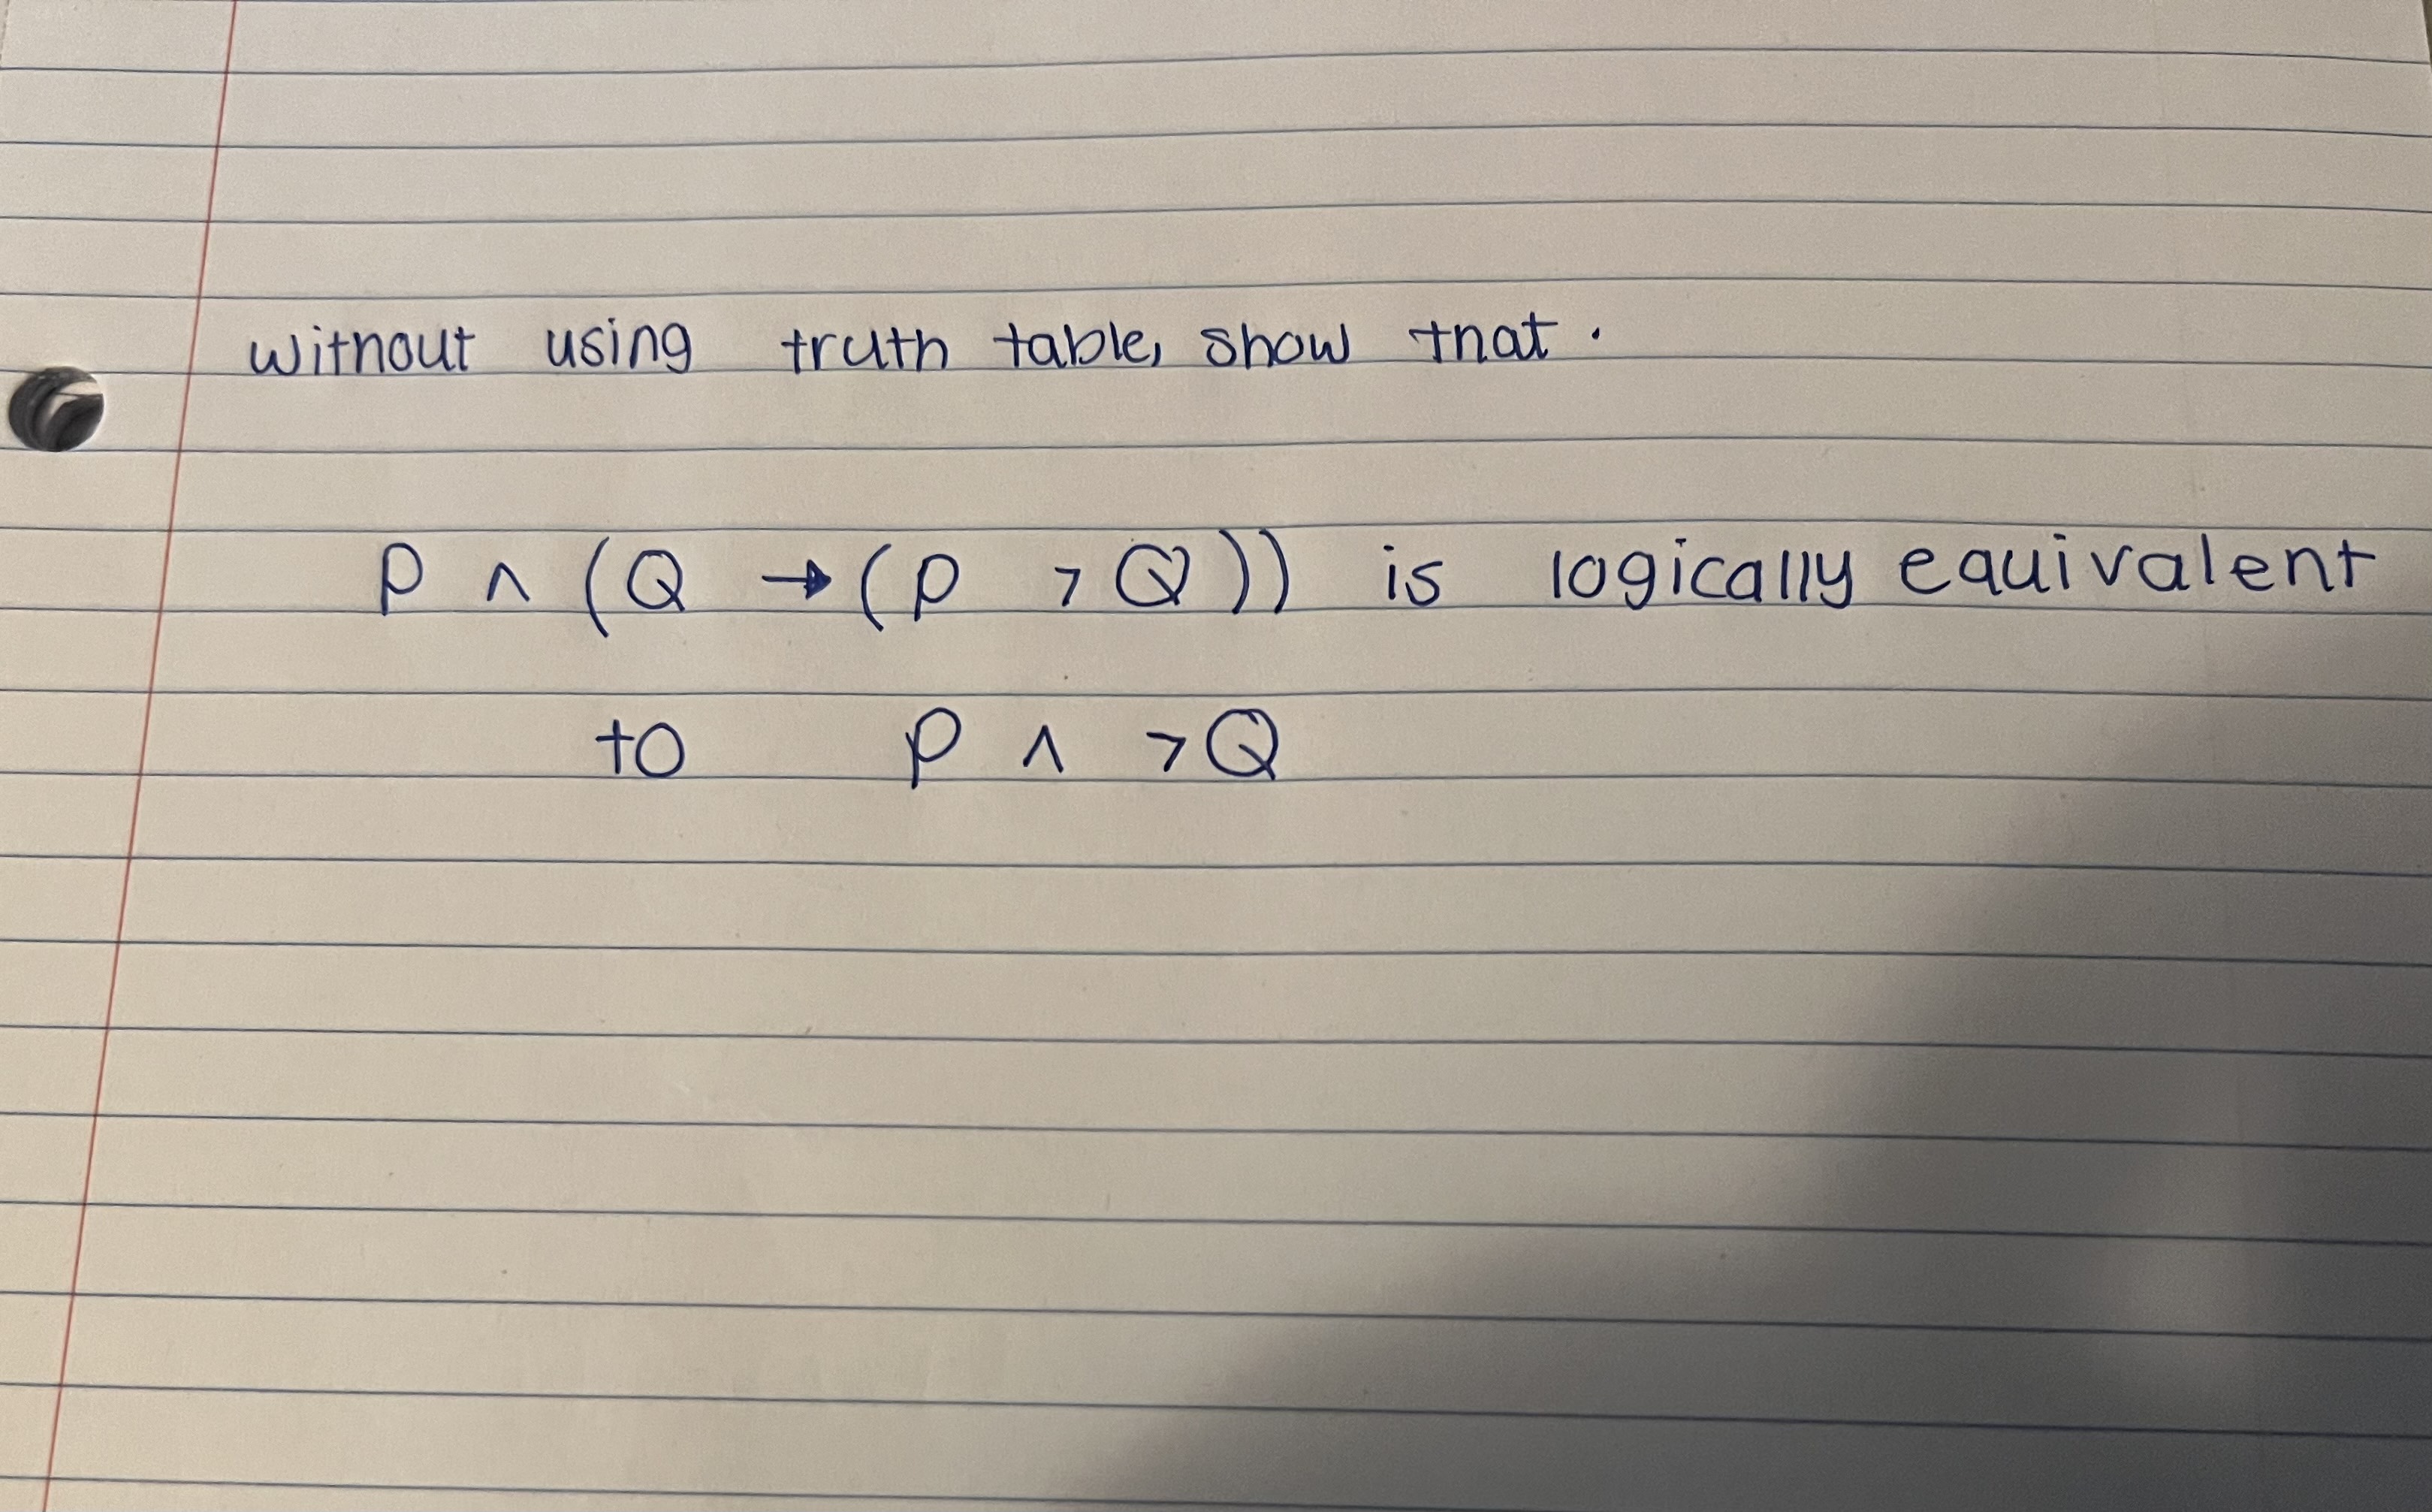 without using truth table, show that.
P ∧ (Q → (P ¬Q)) is logically equivalent
to P ∧ ¬Q